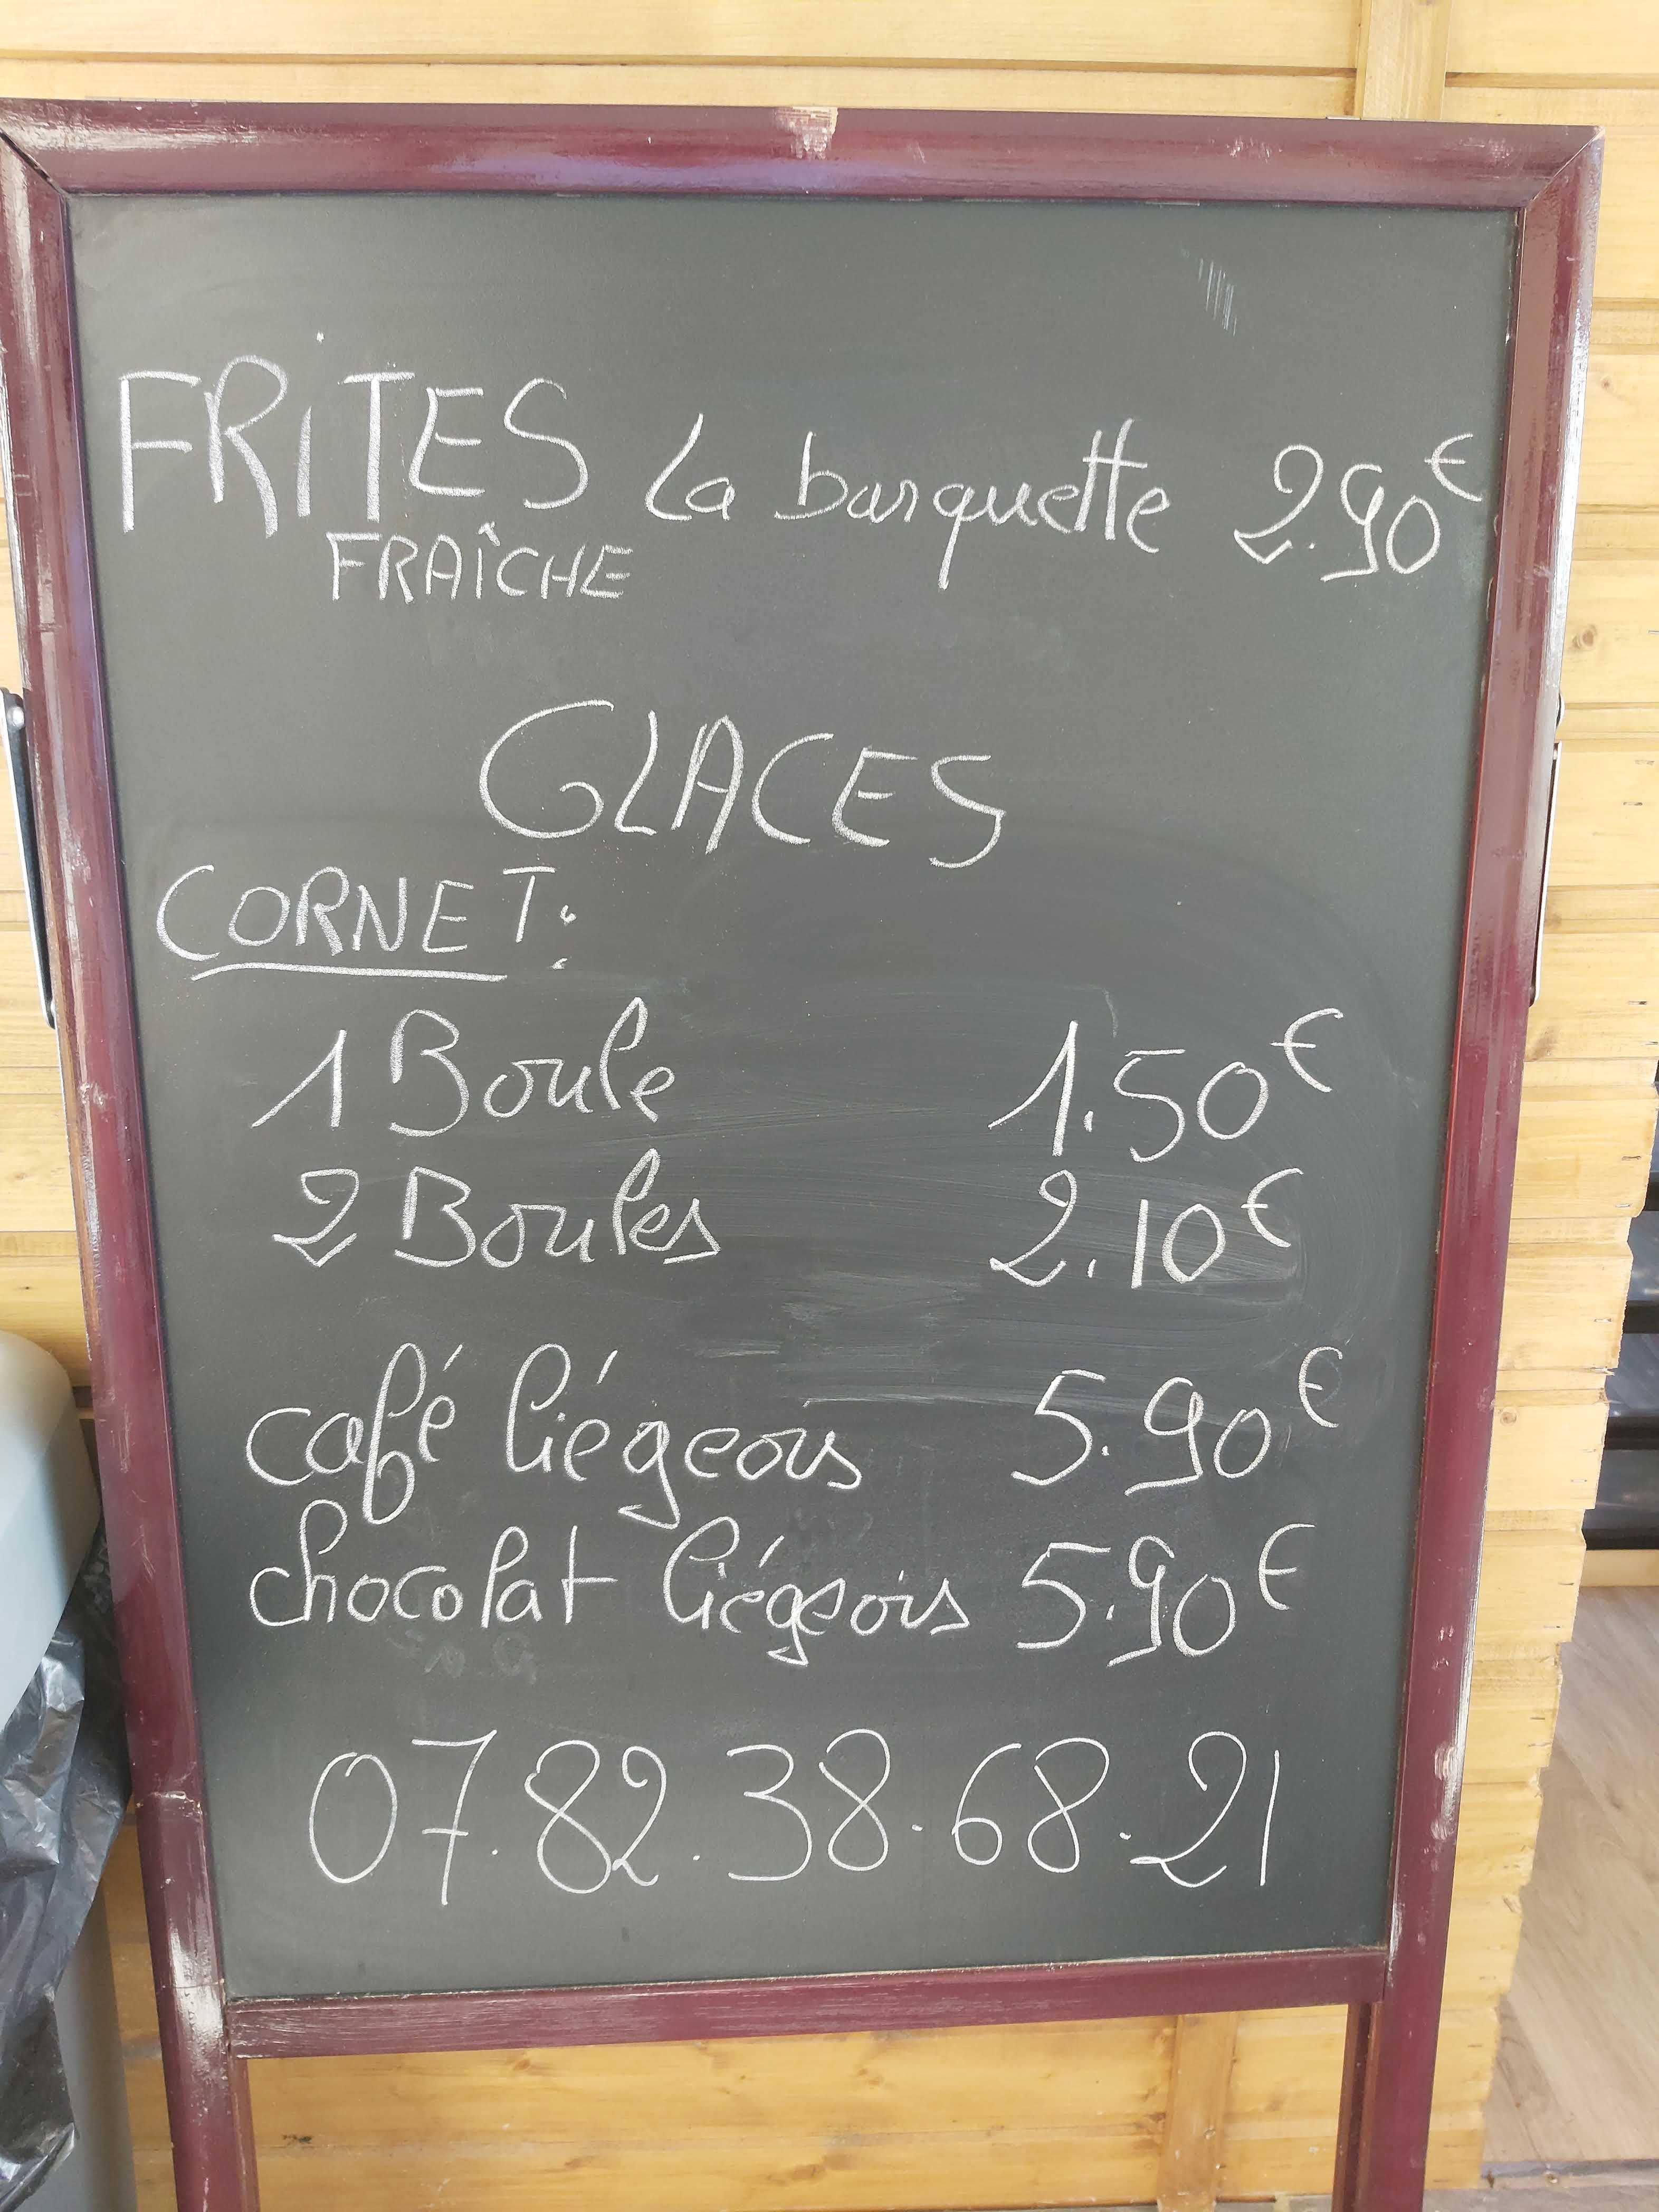 FRiTES La barquette 2.90€
FRAÎCHE
GLACES
CORNET:
1 Boule 1.50€
2 Boules 2.10€
café liégeois 5.90€
chocolat liégeois 5.90€
07.82.38.68.21